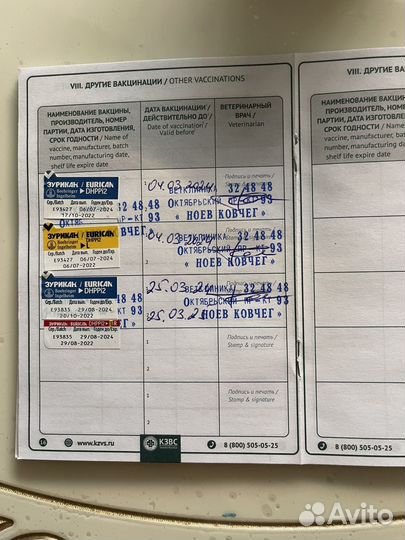 VIII. ДРУГИЕ ВАКЦИНАЦИИ / OTHER VACCINATIONS
НАИМЕНОВАНИЕ ВАКЦИНЫ,
ПРОИЗВОДИТЕЛЬ, НОМЕР
ПАРТИИ, ДАТА ИЗГОТОВЛЕНИЯ,
СРОК ГОДНОСТИ / Name of
vaccine, manufacturer, batch
number, manufacturing date,
shelf life expire date
ДАТА ВАКЦИНАЦИИ /
ДЕЙСТВИТЕЛЬНО ДО /
Date of vaccination /
Valid before
ВЕТЕРИНАРНЫЙ
ВРАЧ /
Veterinarian
ЭУРИКАН / EURICAN
DHPPI2
Boehringer
Ingelheim
Сер./Batch Дата вып. Годен до/Exp.
E93427 06/07-2024
04.03.2024
Подпись и печать /
ВЕТКЛИНИКА 32 48 48
ОКТЯБРЬСКИЙ ПР-КТ 93
« НОЕВ КОВЧЕГ »
ЭУРИКАН / EURICAN
DHPPI2
L
Boehringer
Ingelheim
Сер./Batch Дата вып. Годен до/Exp.
E93427 06/07-2024
06/07-2022
04.03
32 48 48
ОКТЯБРЬСКИЙ ПР-КТ 93
« НОЕВ КОВЧЕГ »
ЭУРИКАН / EURICAN
DHPPI2
Boehringer
Ingelheim
Сер./Batch Дата вып. Годен до/Exp.
E93835 29/08-2024
20/10-2022
25.03.24
ВЕТКЛИНИКА 32 48 48
ОКТЯБРЬСКИЙ ПР-КТ 93
« НОЕВ КОВЧЕГ »
ЭУРИКАН EURICAN DHPPI2 LR
E93835 29/08-2024
29/08-2022
25.03.24
Подпись и печать /
Stamp & signature
Подпись и печать /
Stamp & signature
16
www.kzvs.ru
КЗВС
8 (800) 505-05-25
VIII. ДРУГИ
НАИМЕНОВАНИЕ ВАКЦИНЫ
ПРОИЗВОДИТЕЛЬ, НОМЕ
ПАРТИИ, ДАТА ИЗГОТОВЛЕ
СРОК ГОДНОСТИ / Name
vaccine, manufacturer, ba
number, manufacturing
shelf life expire date
8 (800) 505-05-25
Avito